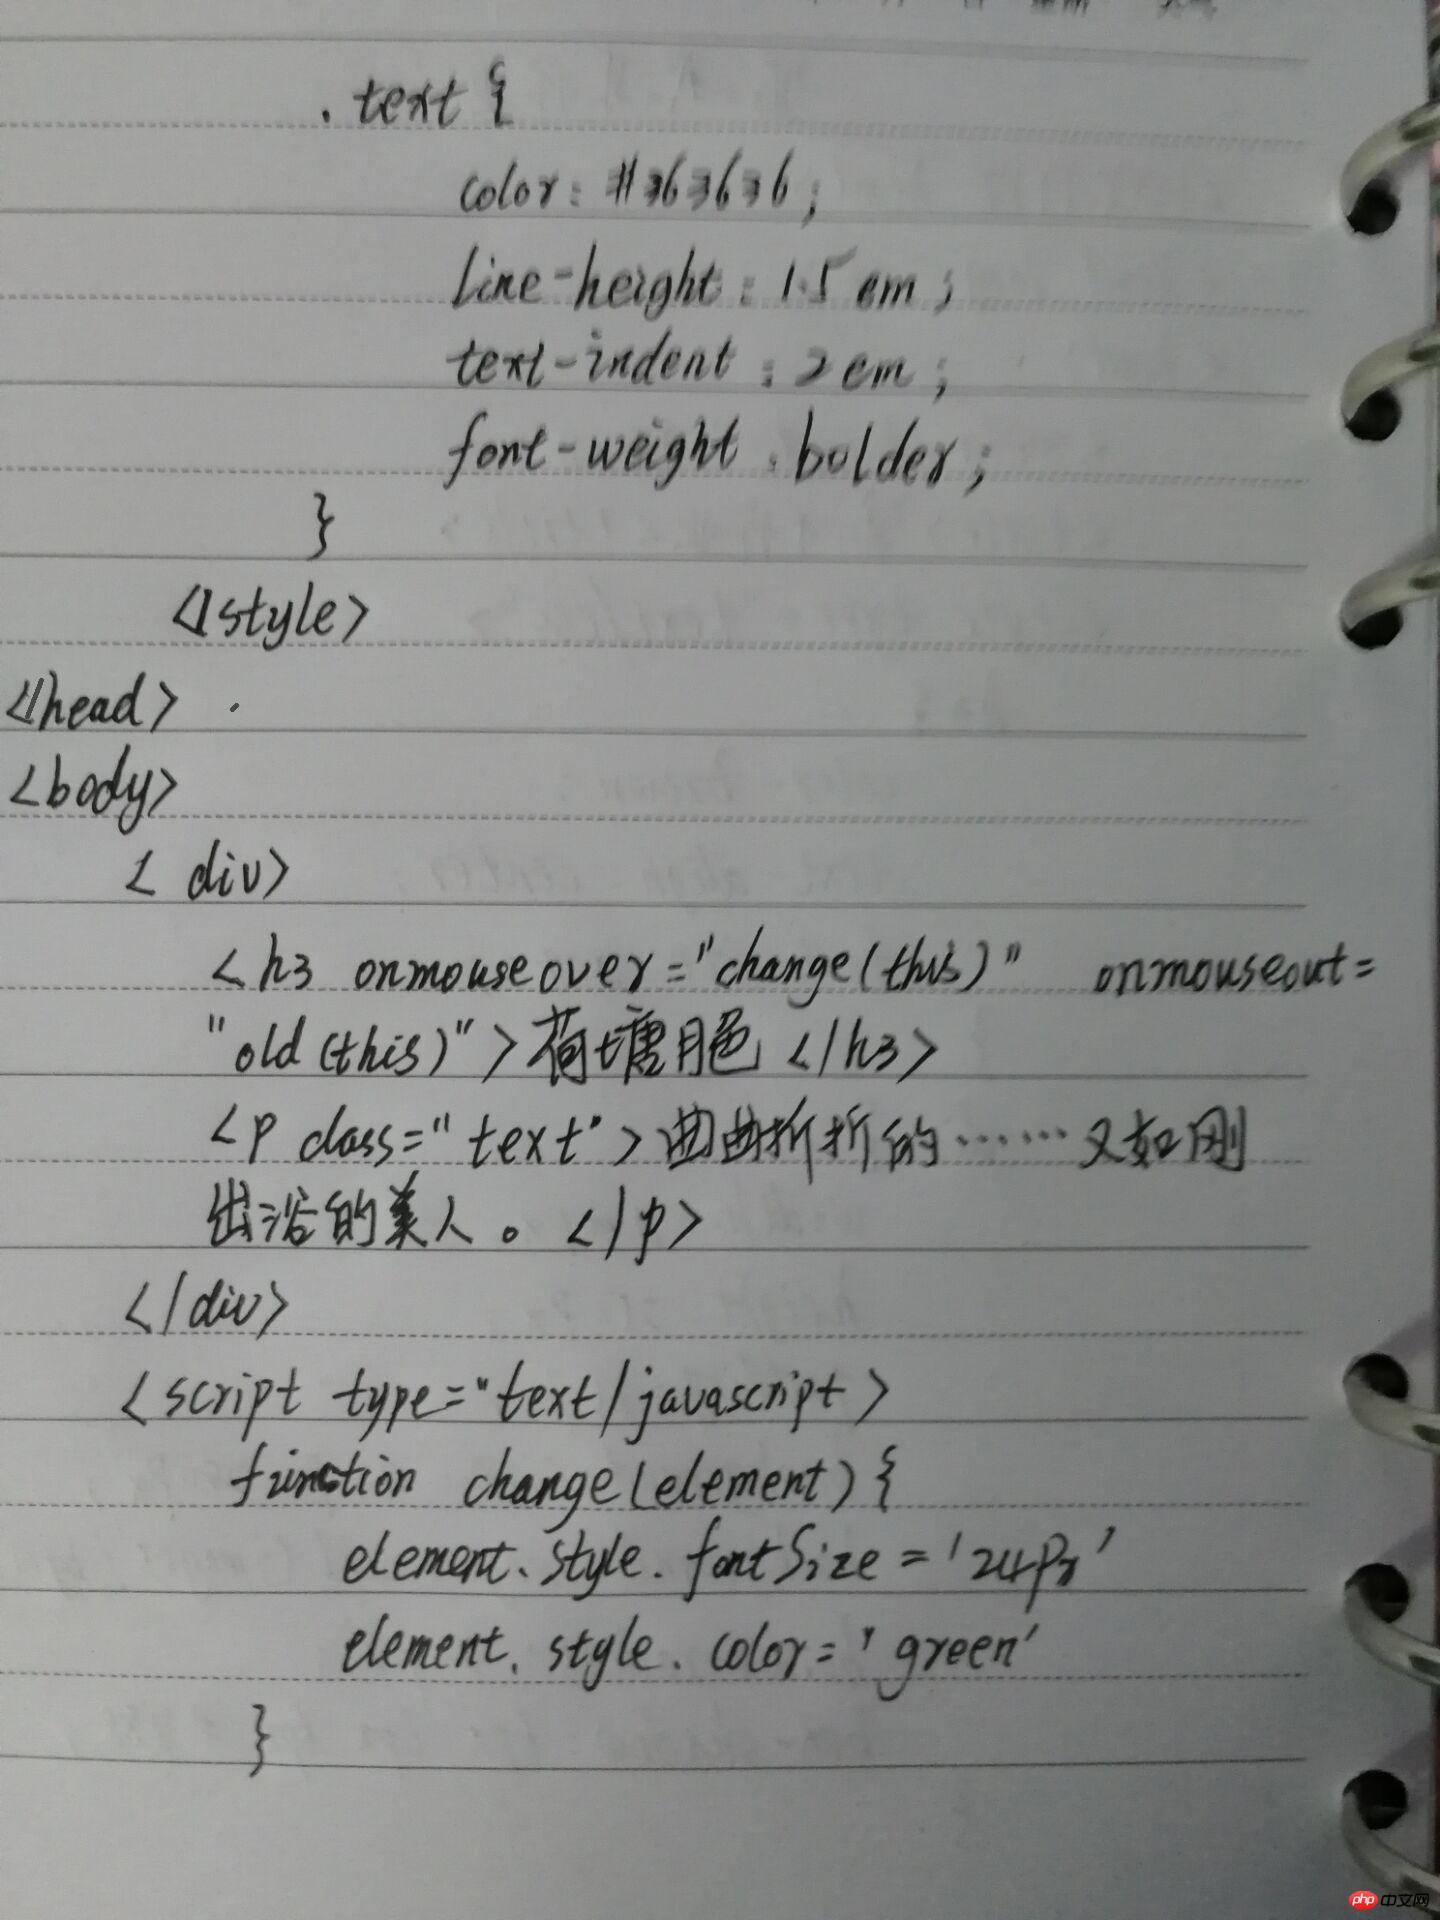 .text{
color: #363636;
line-height: 1.5em;
text-indent: 2em;
font-weight: bolder;
}
</style>
</head>
<body>
< div>
<h3 onmouseover="change(this)" onmouseout=
"old(this)">荷塘月色</h3>
<p class="text">曲曲折折的……又如刚
出浴的美人。</p>
</div>
<script type="text/javascript>
function change(element){
element.style.fontSize='24px'
element.style.color='green'
}
php 中文网